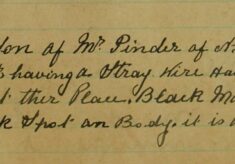 don of Mr Pinder of N.
s having a Stray Wire Ha
t ther Place, Black Mo
k Spot on Body. it is